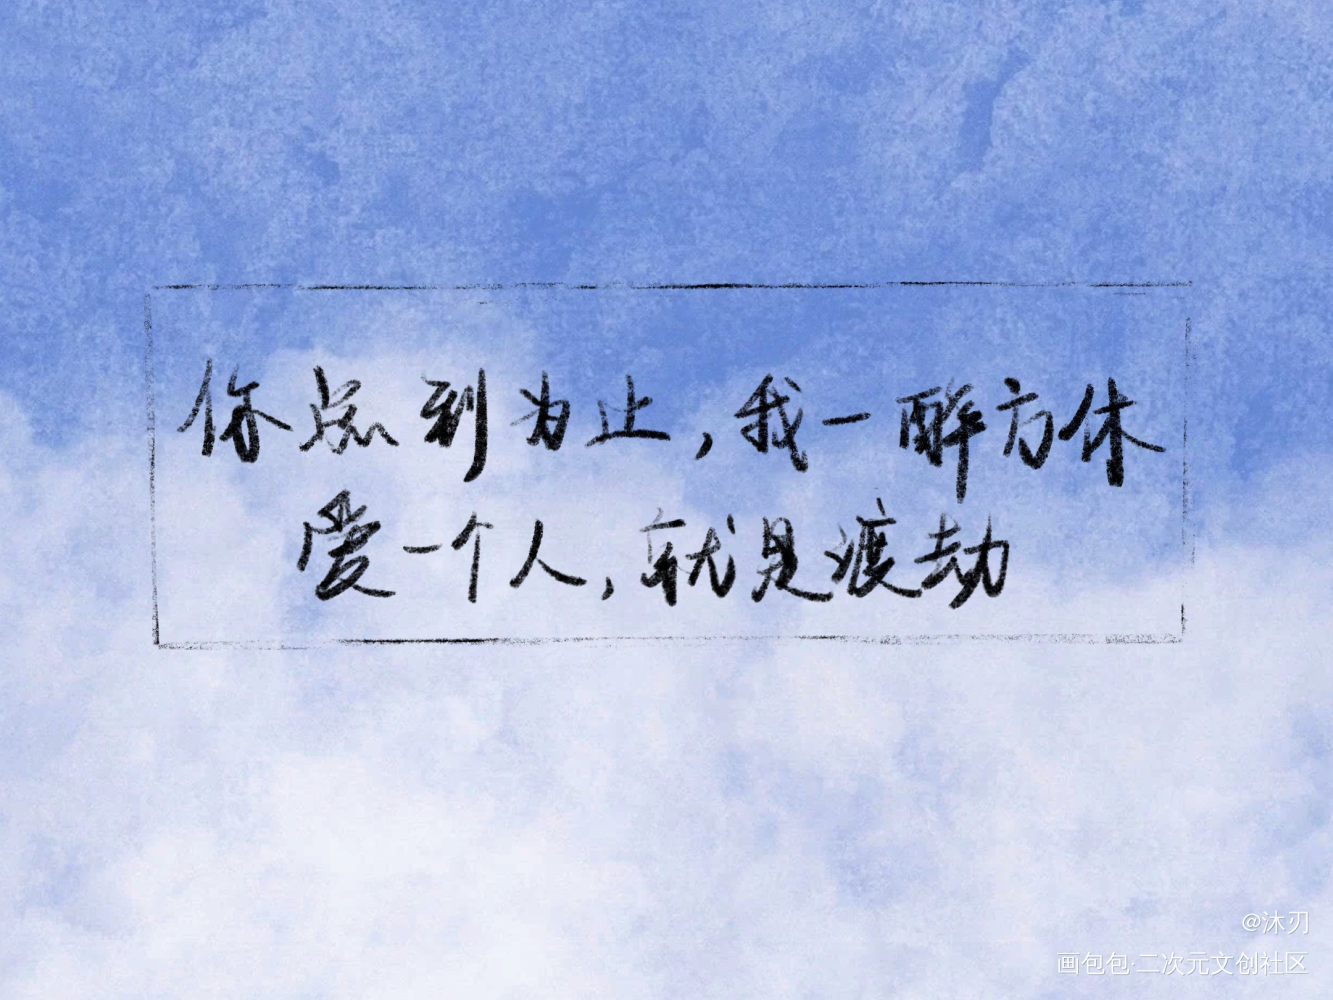 你点到为止，我一醉方休
爱一个人，就是渡劫
@沐刃
画包包·二次元文创社区